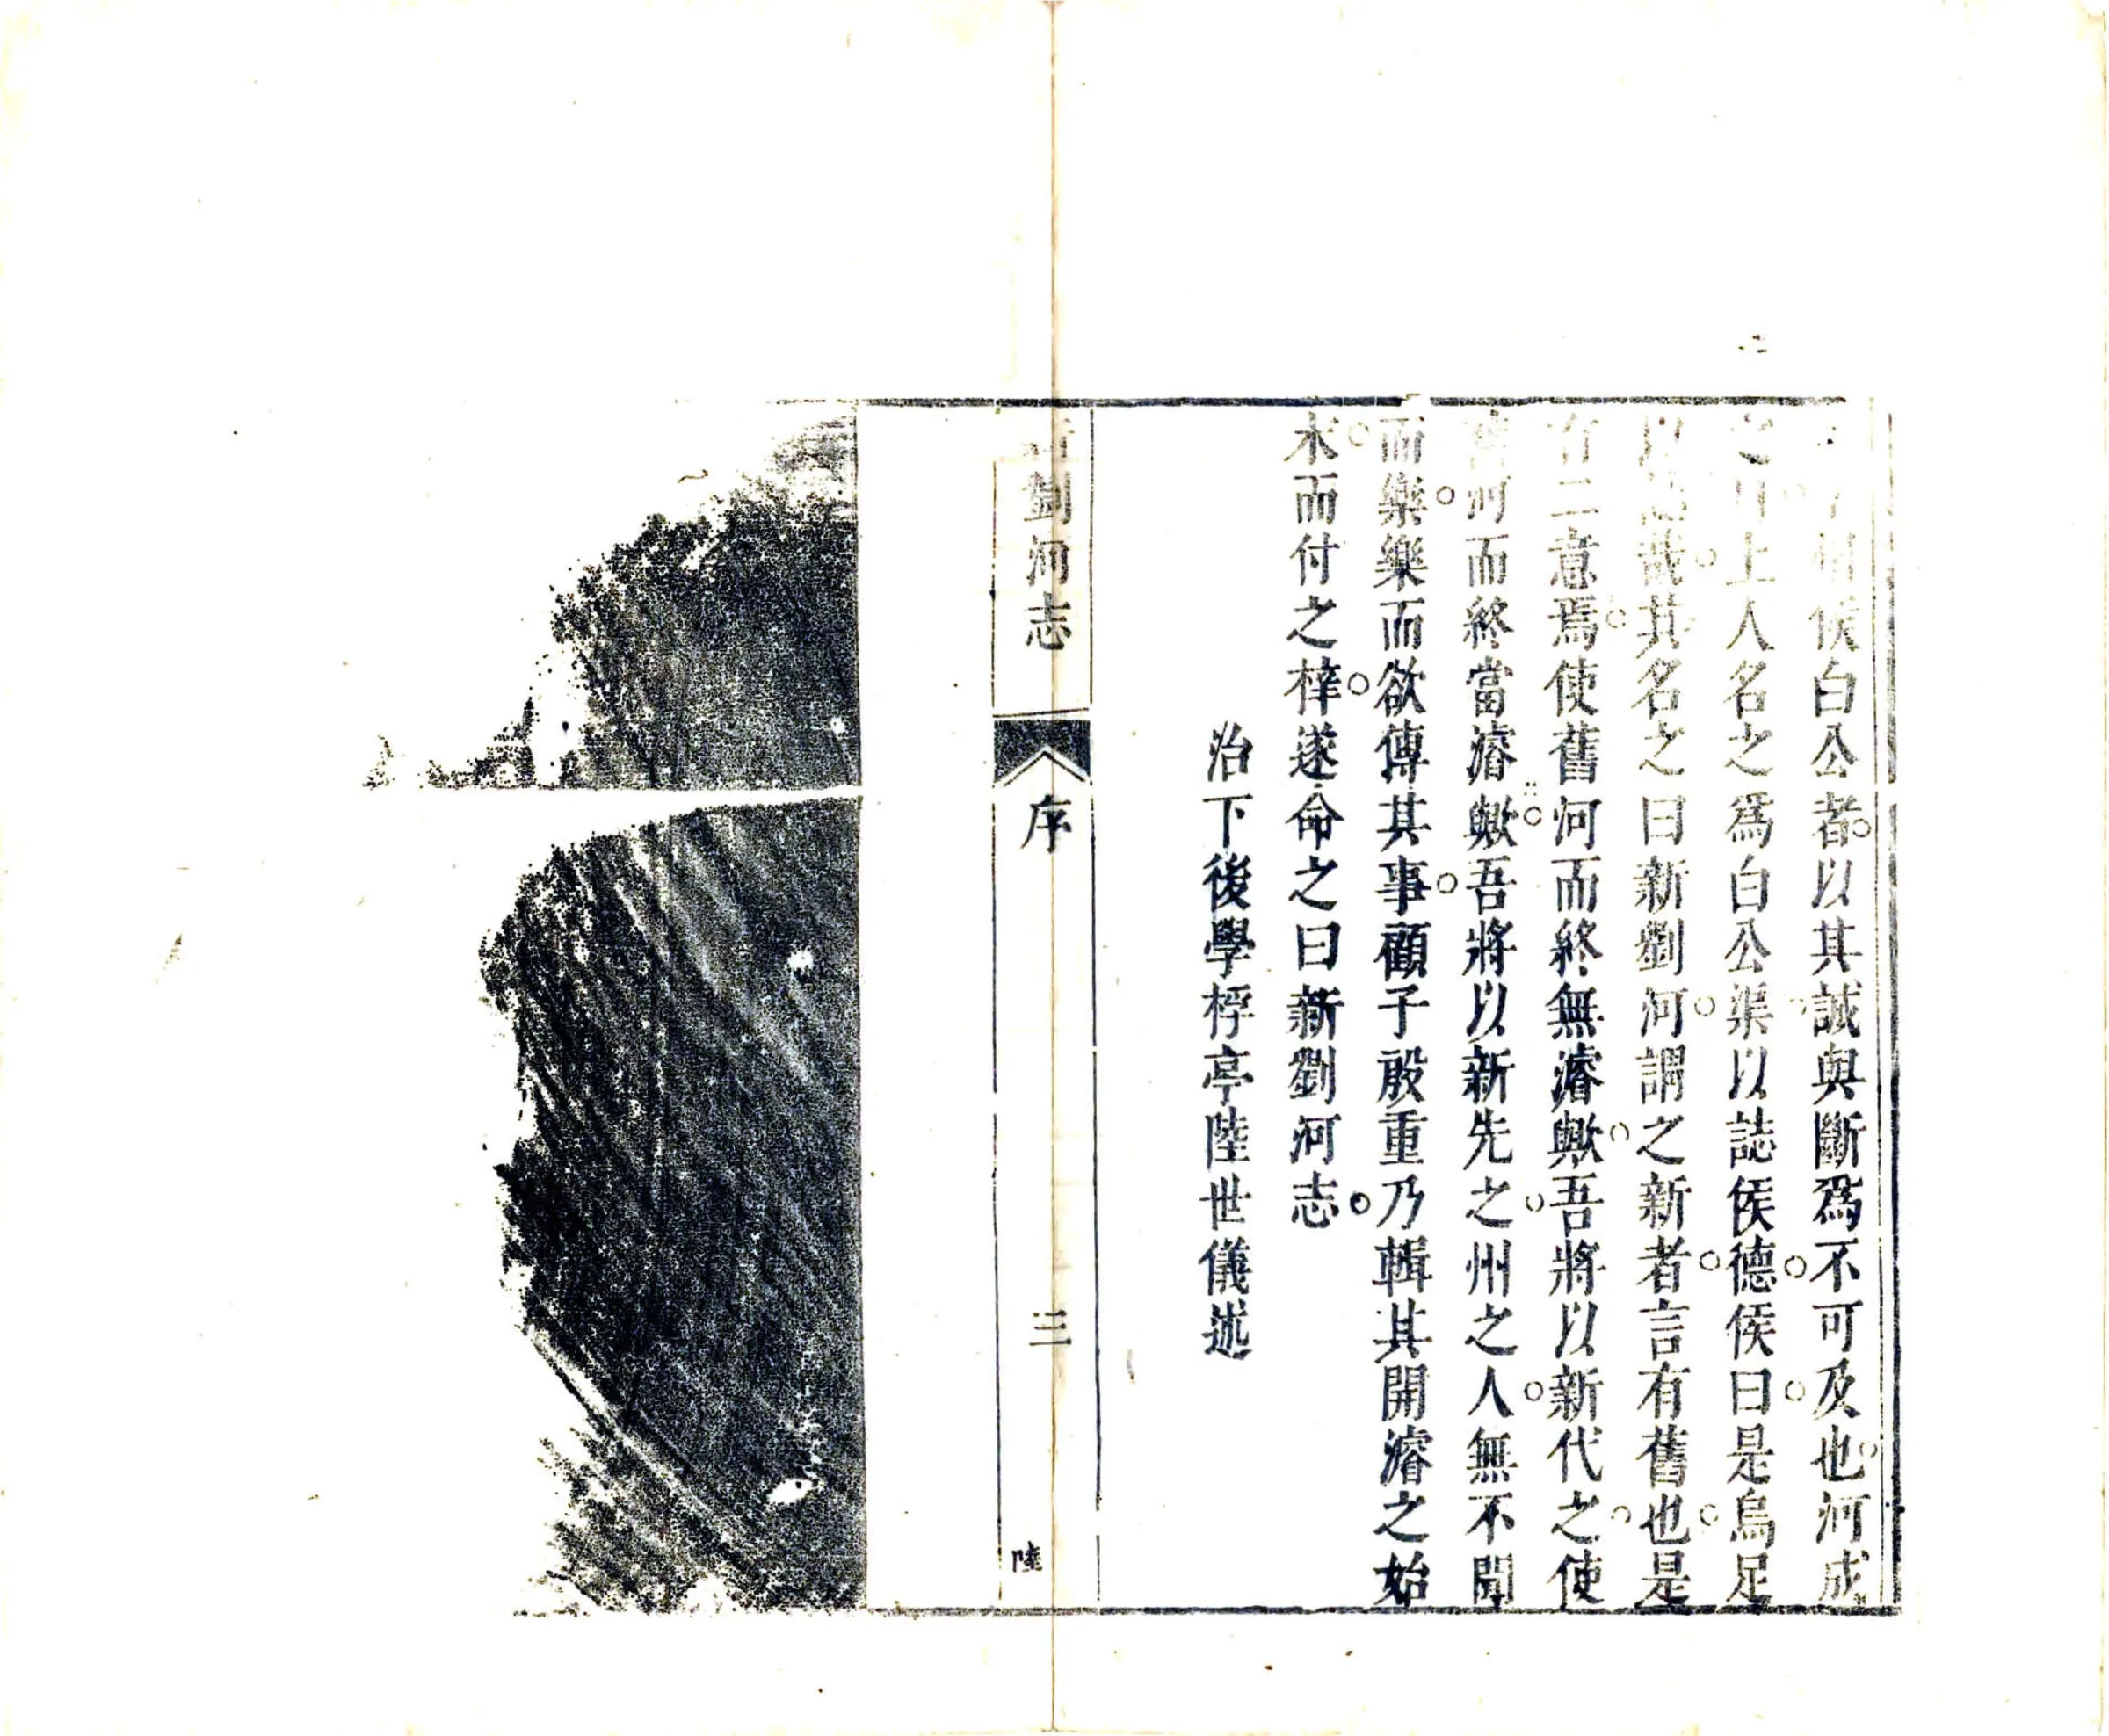 州侯白公者以其誠與斷爲不可及也河成
上人名之爲白公渠以誌侯德侯曰是烏足
誌哉其名之曰新劉河謂之新者言有舊也是
有二意焉使舊河而終無濬歟吾將以新代之使
舊河而終當濬歟吾將以新先之州之人無不聞
而樂樂而欲傳其事顧子殷重乃輯其開濬之始
末而付之梓遂命之曰新劉河志
治下後學桴亭陸世儀述
劉河志
序
三
陸